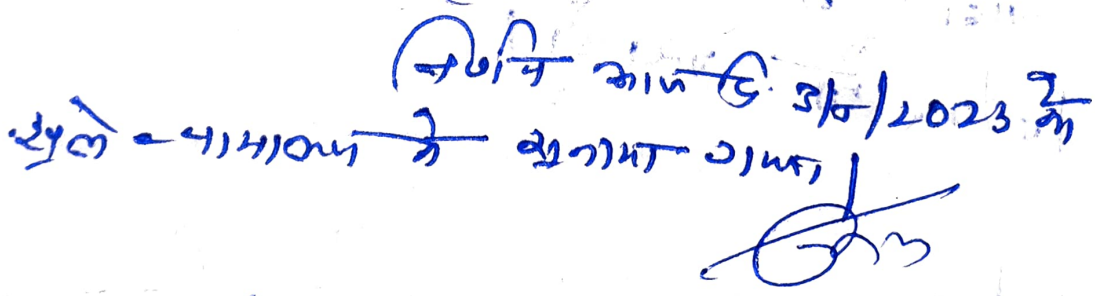 निर्णय आज दि. 3/8/2023 को
खुले न्यायालय में सुनाया गया।